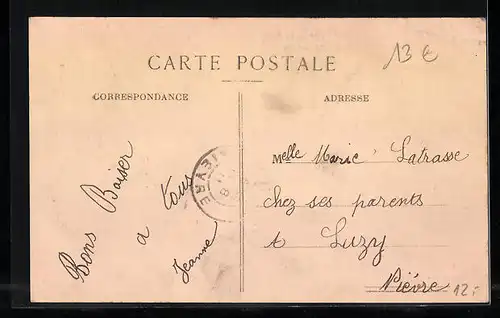 13 €
CARTE POSTALE
CORRESPONDANCE
ADRESSE
Bons Baiser
a Tous
Jeanne
Melle Marie Latrasse
chez ses parents
à Luzy
Nièvre
12.-